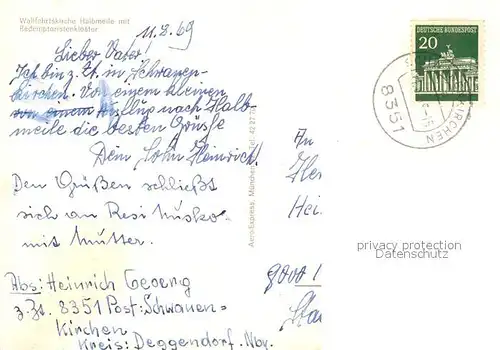 Wallfahrtskirche Halbmeile mit
Redemptoristenkloster
11.8.69
Lieber Vater,
Ich bin z. Zt. in Schwanen-
kirchen. Von einem kleinen
von einem Ausflug nach Halb-
meile die besten Grüße
Dein Sohn Heinrich.
Den Grüßen schließt
sich an Resi
mit Mutter.
Abs: Heinrich Georg
z. Zt. 8351 Post: Schwanen=
Kirchen
Kreis: Deggendorf. Nby.
Aero-Express, München
DEUTSCHE BUNDESPOST
20
8351
KIRCHEN
An
Her
Hei
9000
privacy protection
Datenschutz